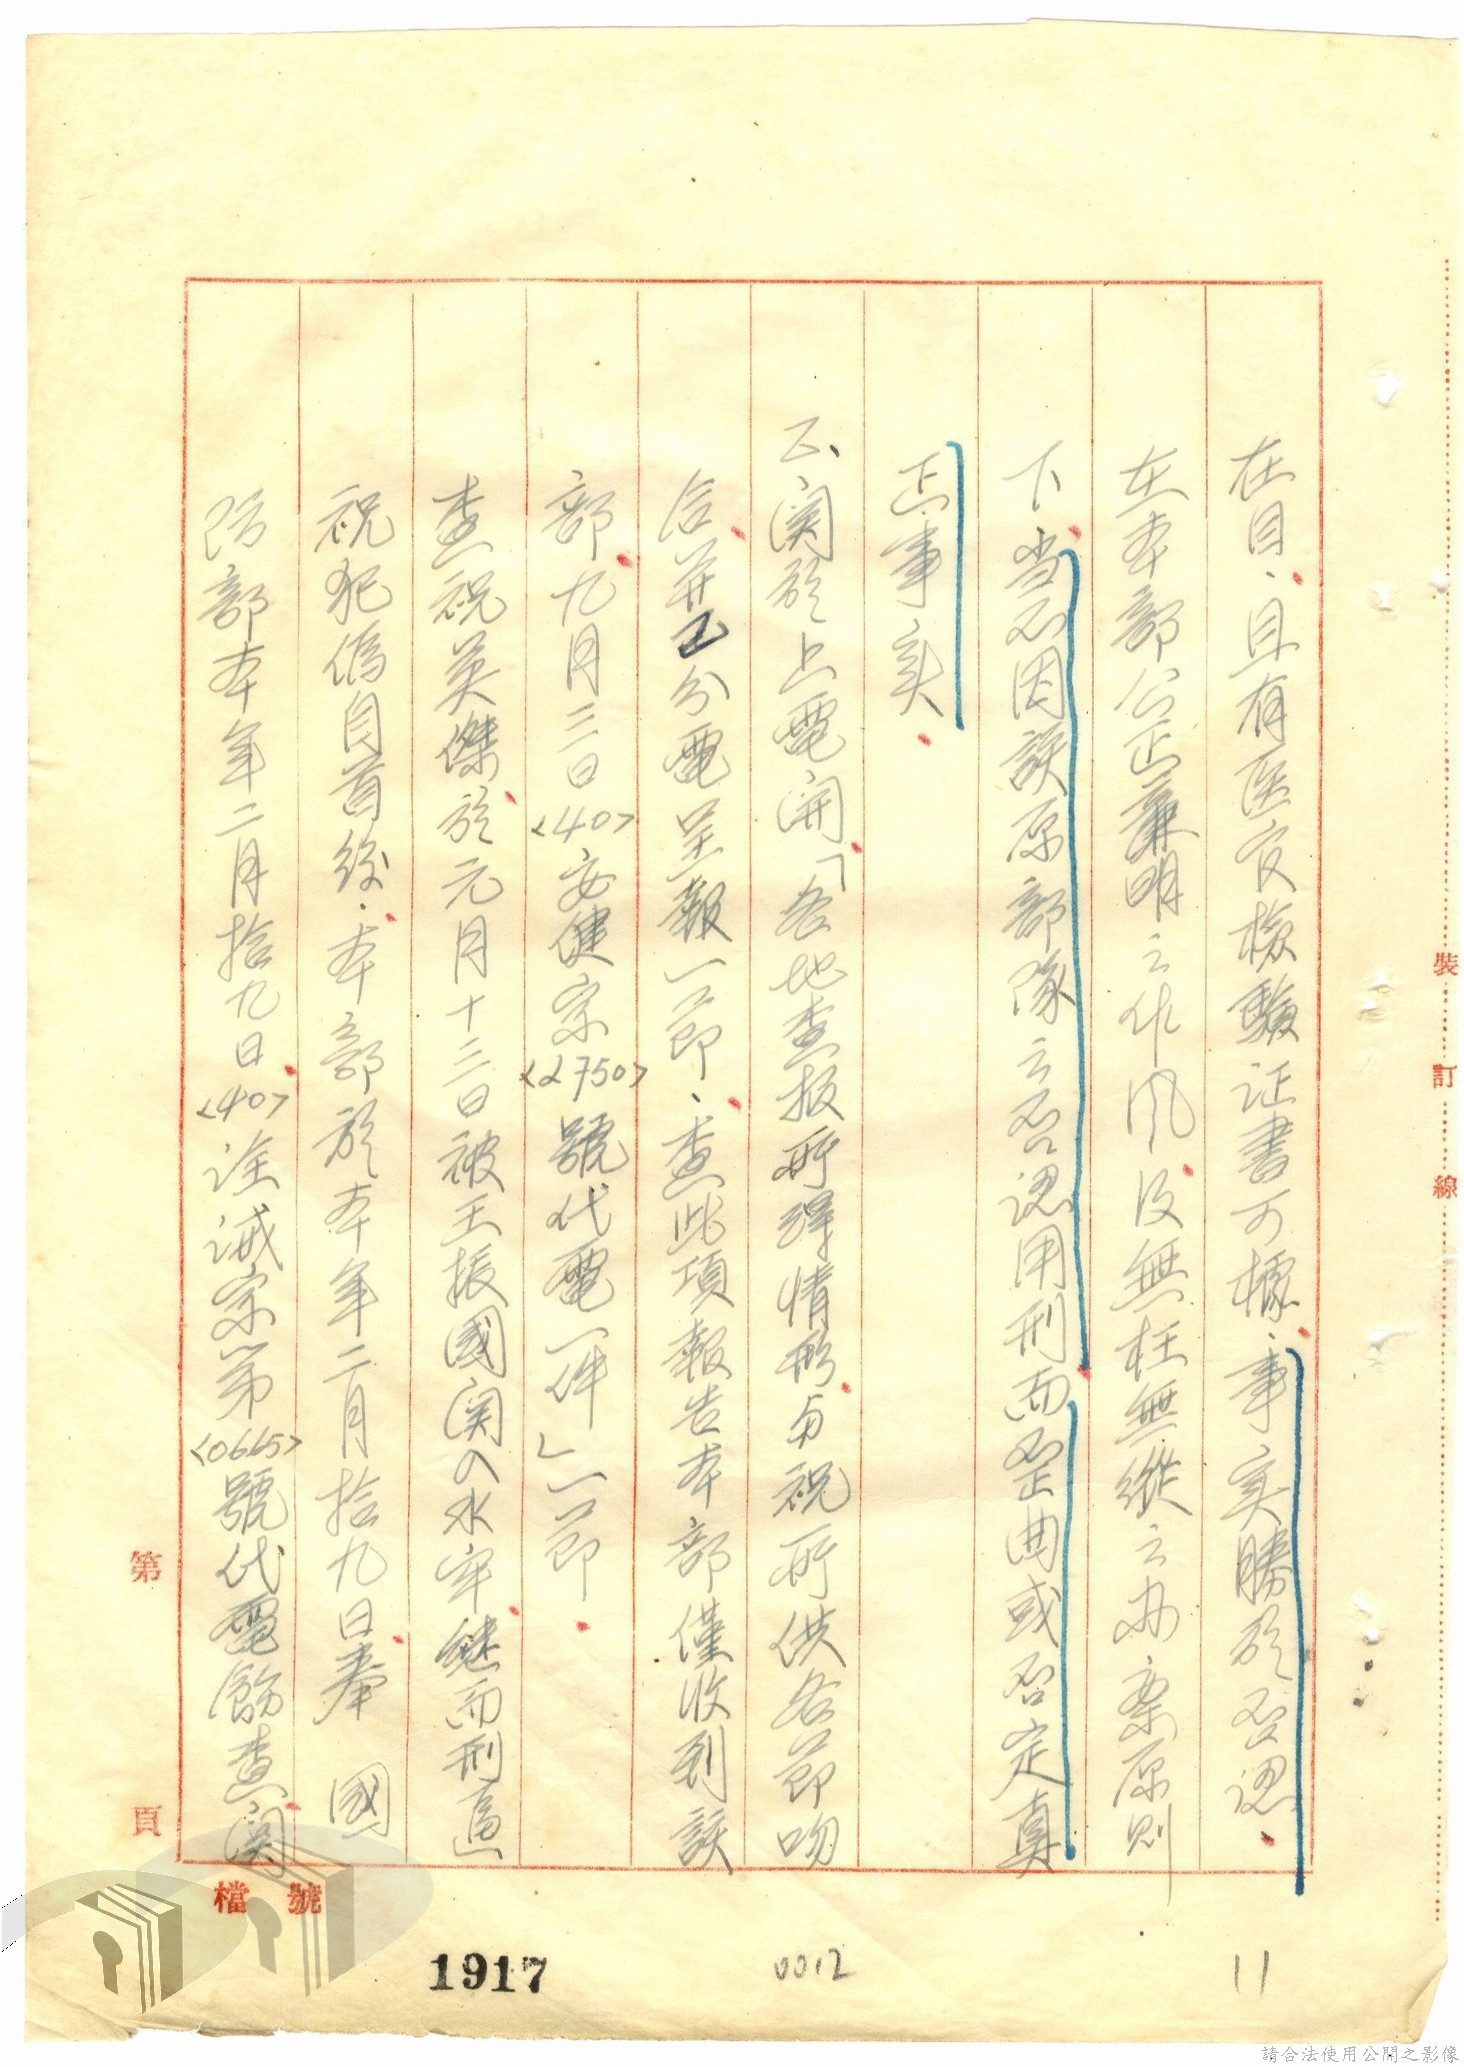 在目、且有医官檢驗证書可據、事实勝於否認、
在本部公正廉明之作风及無枉無縱之办案原則
下当不因該原部隊之否認用刑而歪曲或否定真
正事实
五、関於上電開「各地查报所繹情形与祝所供各節吻
合并已分電呈報一節、查此項報告本部僅收到該
部九月三日<40>安健宗<2750>號代電一件」一節
查祝英傑於元月十三日被王振國関入水牢継而刑逼
祝犯偽自首後、本部於本年二月拾九日奉 國
防部本年二月拾九日<40>诠诚宗第<0665>號代電飭查関
裝訂線
第 頁
檔號
1917
0012
11
請合法使用公開之影像